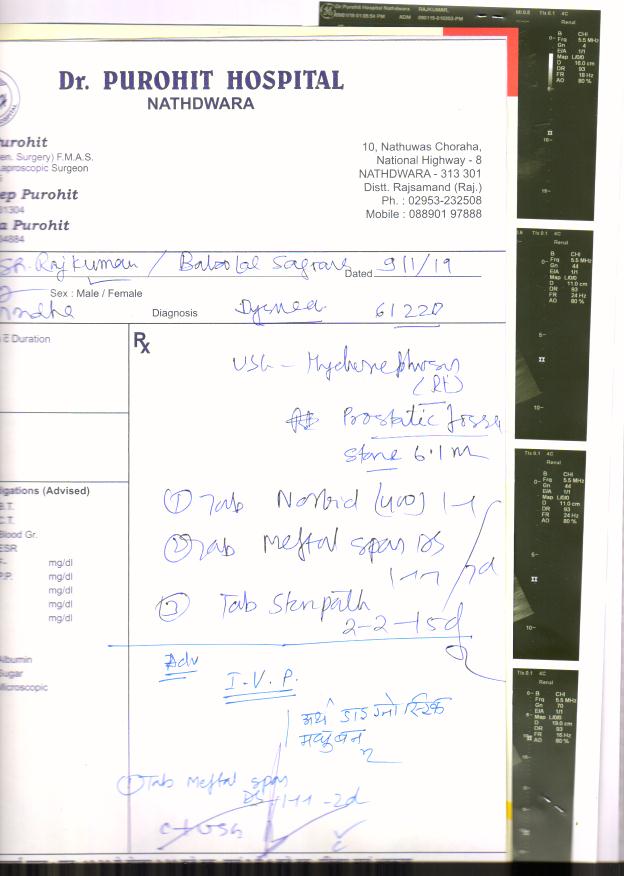 Dr Purohit Hospital Nathdwara RAJKUMAR,
ADM 090119-010203-PM
MI 0.8 TIs 0.1 4C
Renal
B CHI
Frq 5.5 MHz
Gn 4
E/A 1/1
Map L/0/0
D 16.0 cm
DR 93
FR 18 Hz
AO 80 %
Dr. PUROHIT HOSPITAL
NATHDWARA
urohit
en. Surgery) F.M.A.S.
aproscopic Surgeon
ep Purohit
31304
a Purohit
04884
10, Nathuwas Choraha,
National Highway - 8
NATHDWARA - 313 301
Distt. Rajsamand (Raj.)
Ph. : 02953-232508
Mobile : 088901 97888
Sh. Rajkumar / Baboolal
Dated 9/1/19
Sex : Male / Female
Diagnosis
61220
& Duration
Rx
USG -
(Rt)
Prostatic fossa
stone 6.1 m
① Tab (400) 1-1
② Tab Meftal span DS
③ Tab
2-2-15d
igations (Advised)
B.T.
C.T.
Blood Gr.
ESR
F- mg/dl
P.P. mg/dl
mg/dl
mg/dl
mg/dl
Albumin
Sugar
Microscopic
Adv
I.V.P.
अर्थ डाइग्नोस्टिक
मधुबन
① Tab Meftal span
DS 1-1-1 -2d
TIs 0.1 4C
Renal
B CHI
Frq 5.5 MHz
Gn 44
E/A 1/1
Map L/0/0
D 11.0 cm
DR 93
FR 24 Hz
AO 80 %
5-
10-
TIs 0.1 4C
Renal
B CHI
Frq 5.5 MHz
Gn 44
E/A 1/1
Map L/0/0
D 11.0 cm
DR 93
FR 24 Hz
AO 80 %
5-
10-
TIs 0.1 4C
Renal
B CHI
Frq 5.5 MHz
Gn 70
E/A 1/1
Map L/0/0
D 19.0 cm
DR 93
FR 16 Hz
AO 80 %